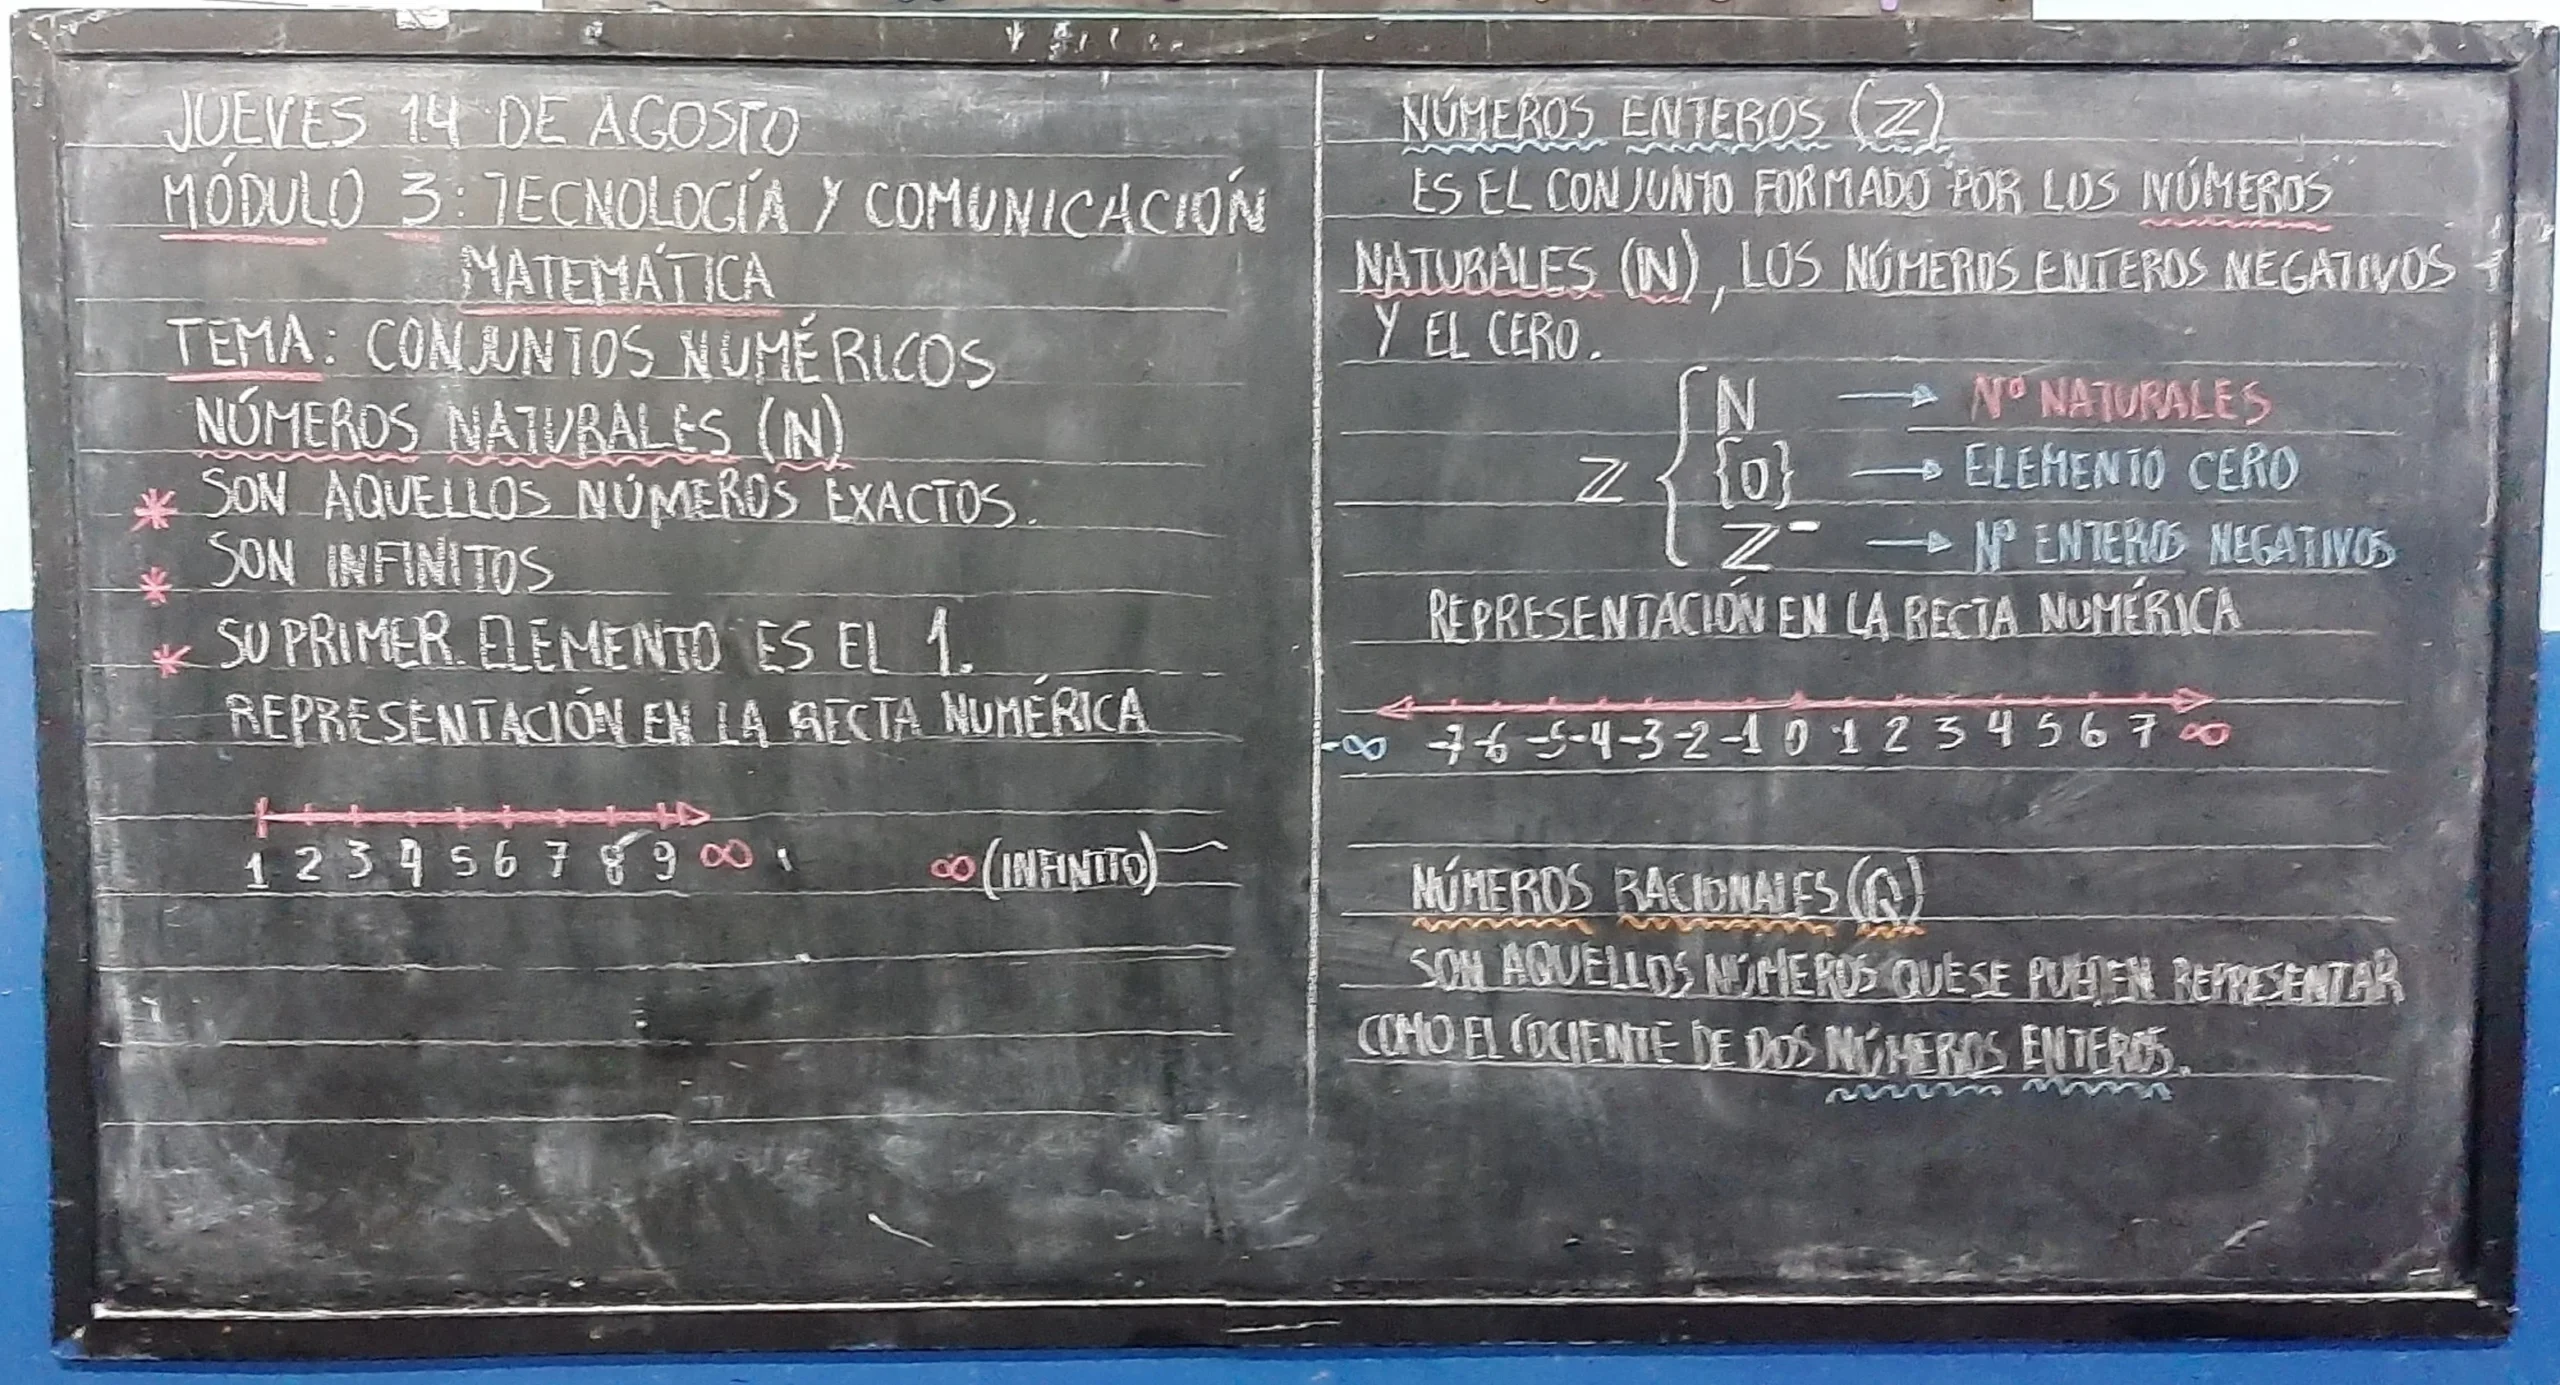 JUEVES 14 DE AGOSTO
MÓDULO 3: TECNOLOGÍA Y COMUNICACIÓN
MATEMÁTICA
TEMA: CONJUNTOS NUMÉRICOS
NÚMEROS NATURALES (N)
* SON AQUELLOS NÚMEROS EXACTOS.
* SON INFINITOS
* SU PRIMER ELEMENTO ES EL 1.
REPRESENTACIÓN EN LA RECTA NUMÉRICA
1 2 3 4 5 6 7 8 9 ∞
∞ (INFINITO)
NÚMEROS ENTEROS (Z)
ES EL CONJUNTO FORMADO POR LOS NÚMEROS
NATURALES (N), LOS NÚMEROS ENTEROS NEGATIVOS
Y EL CERO.
Z { N → Nº NATURALES
{0} → ELEMENTO CERO
Z⁻ → Nº ENTEROS NEGATIVOS
REPRESENTACIÓN EN LA RECTA NUMÉRICA
-∞ -7 -6 -5 -4 -3 -2 -1 0 1 2 3 4 5 6 7 ∞
NÚMEROS RACIONALES (Q)
SON AQUELLOS NÚMEROS QUE SE PUEDEN REPRESENTAR
COMO EL COCIENTE DE DOS NÚMEROS ENTEROS.